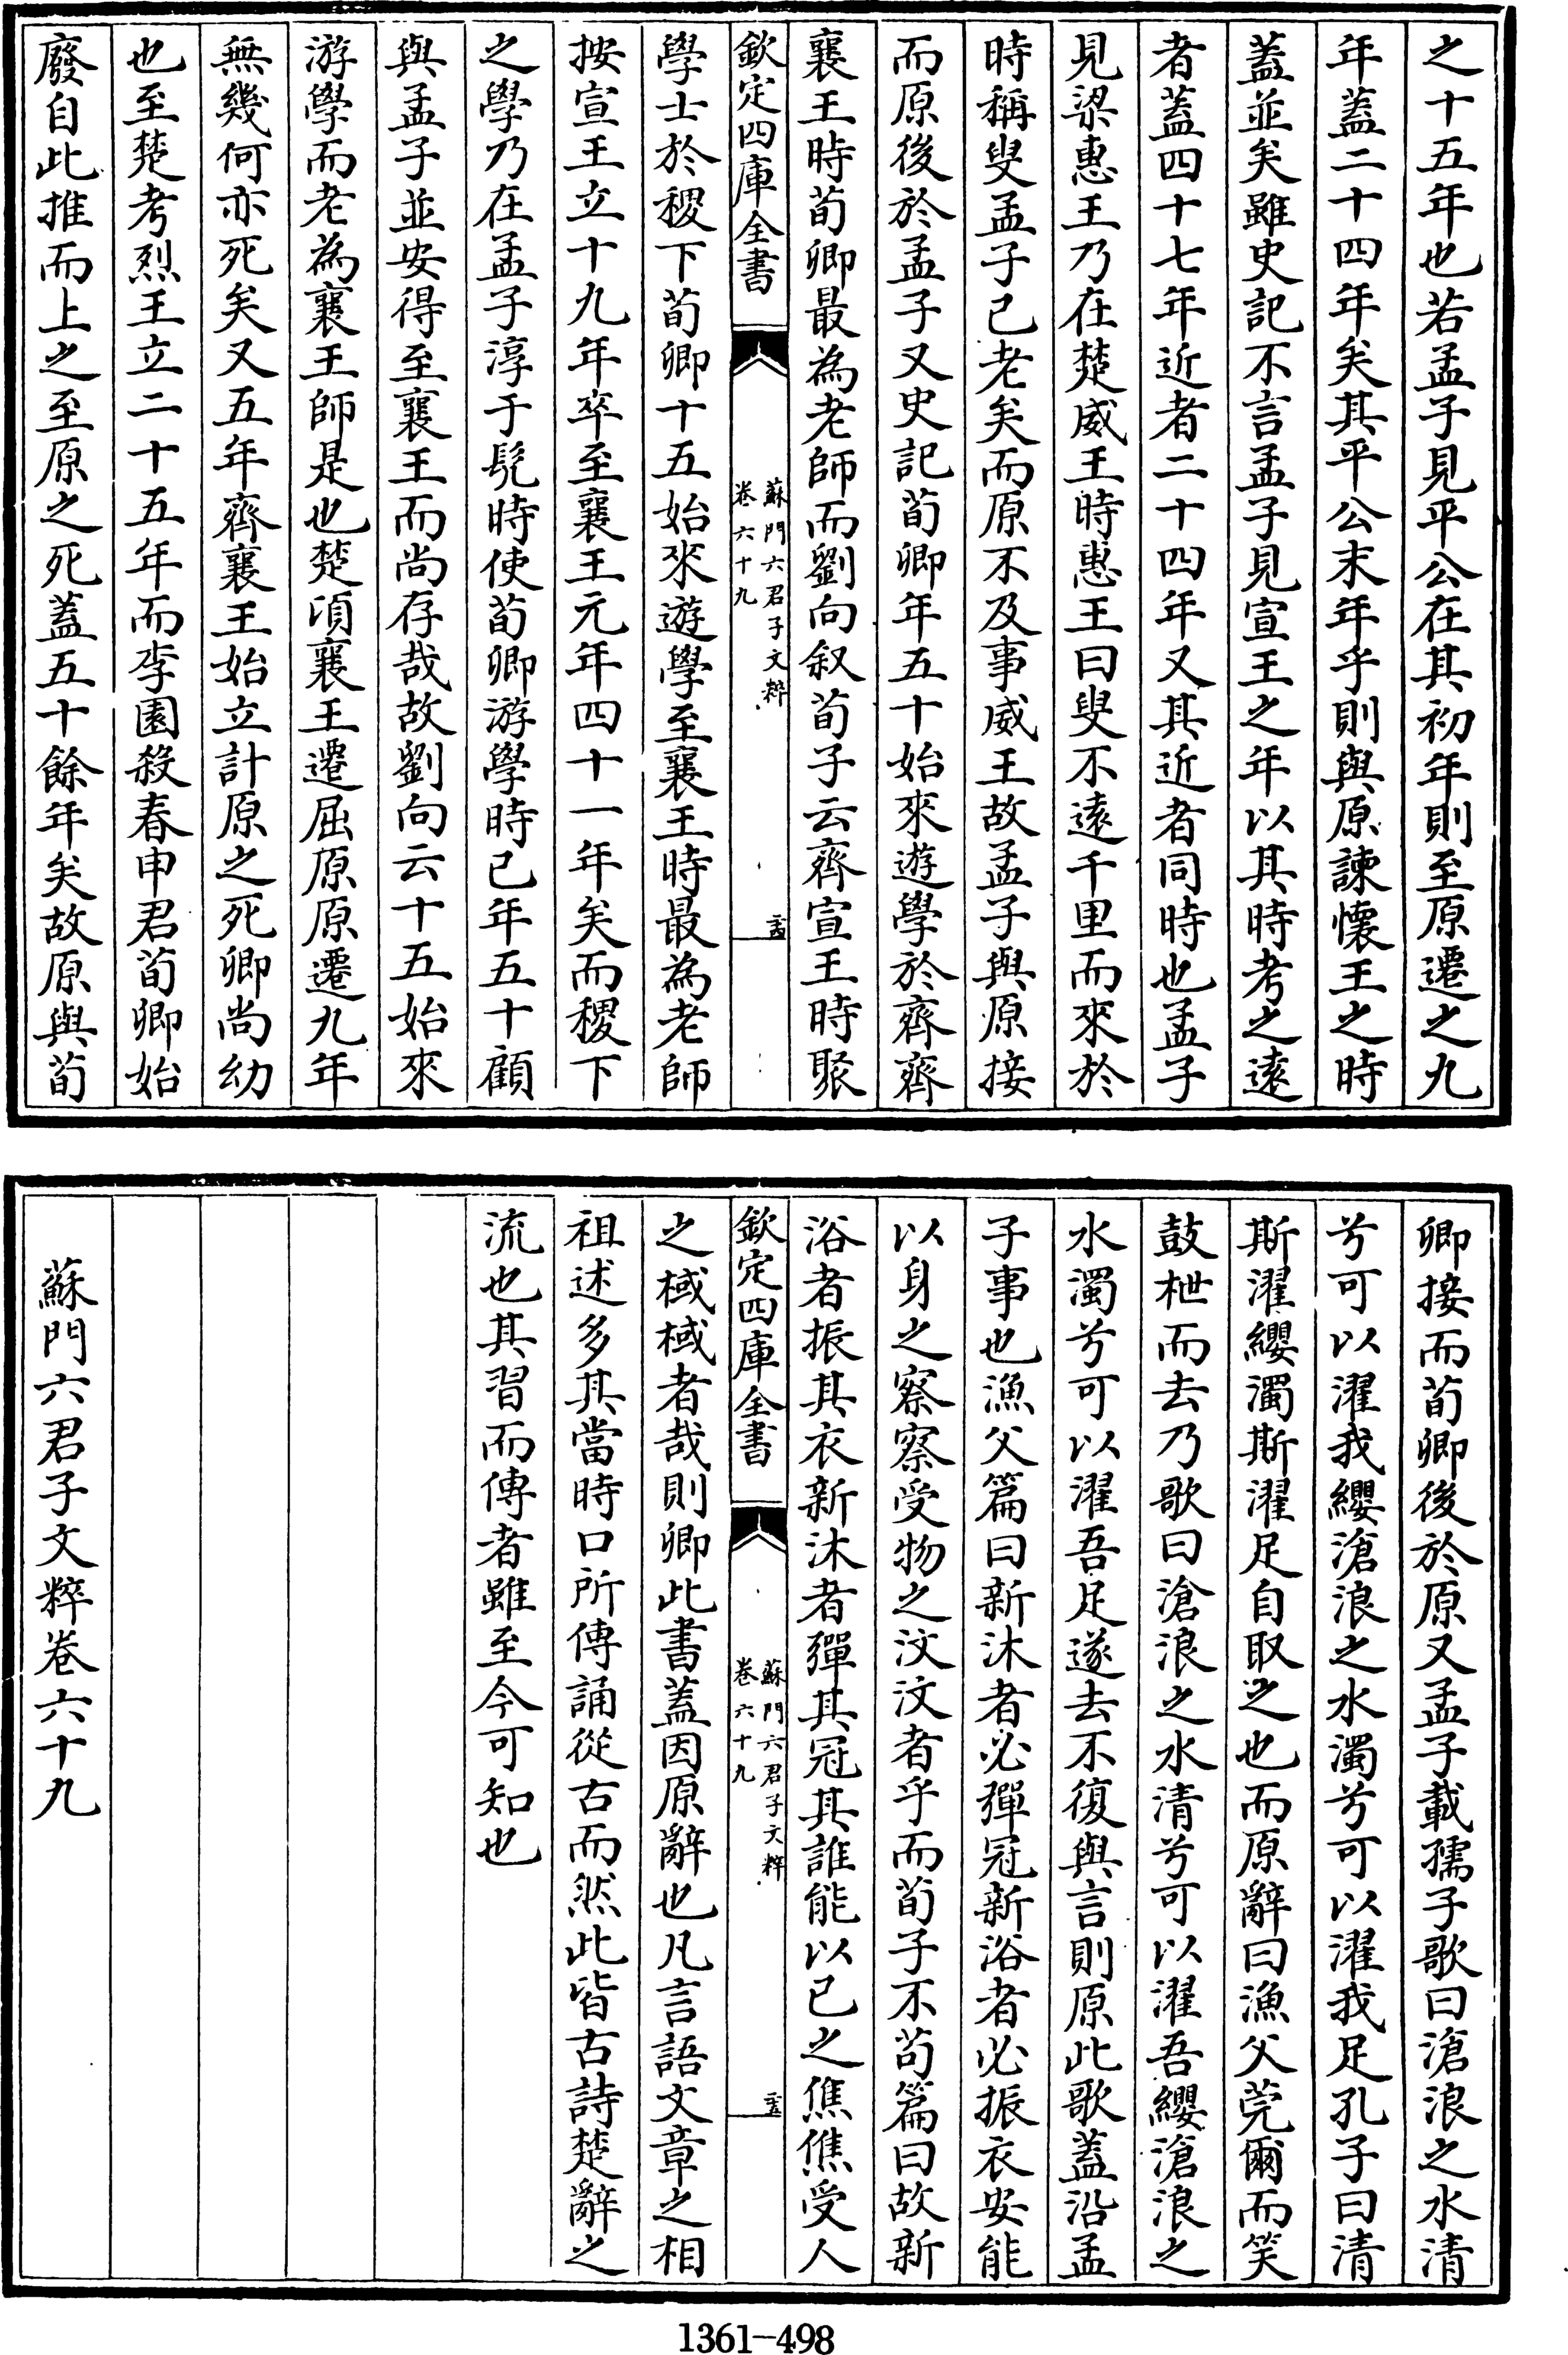 之十五年也若孟子見平公在其初年則至原遷之九
年蓋二十四年矣其平公末年乎則與原諫懷王之時
蓋並矣雖史記不言孟子見宣王之年以其時考之遠
者蓋四十七年近者二十四年又其近者同時也孟子
見梁惠王乃在楚威王時惠王曰叟不遠千里而來於
時稱叟孟子已老矣而原不及事威王故孟子與原接
而原後於孟子又史記荀卿年五十始來遊學於齊齊
襄王時荀卿最為老師而劉向叙荀子云齊宣王時聚
欽定四庫全書
蘇門六君子文粹
卷六十九
學士於稷下荀卿十五始來遊學至襄王時最為老師
按宣王立十九年卒至襄王元年四十一年矣而稷下
之學乃在孟子淳于髠時使荀卿游學時已年五十顧
與孟子並安得至襄王而尚存哉故劉向云十五始來
游學而老為襄王師是也楚頃襄王遷屈原原遷九年
無幾何亦死矣又五年齊襄王始立計原之死卿尚幼
也至楚考烈王立二十五年而李園殺春申君荀卿始
廢自此推而上之至原之死蓋五十餘年矣故原與荀
卿接而荀卿後於原又孟子載孺子歌曰滄浪之水清
兮可以濯我纓滄浪之水濁兮可以濯我足孔子曰清
斯濯纓濁斯濯足自取之也而原辭曰漁父莞爾而笑
鼓枻而去乃歌曰滄浪之水清兮可以濯吾纓滄浪之
水濁兮可以濯吾足遂去不復與言則原此歌蓋沿孟
子事也漁父篇曰新沐者必彈冠新浴者必振衣安能
以身之察察受物之汶汶者乎而荀子不苟篇曰故新
浴者振其衣新沐者彈其冠其誰能以已之僬僬受人
欽定四庫全書
蘇門六君子文粹
卷六十九
之棫棫者哉則卿此書蓋因原辭也凡言語文章之相
祖述多其當時口所傳誦從古而然此皆古詩楚辭之
流也其習而傳者雖至今可知也
蘇門六君子文粹卷六十九
1361-498